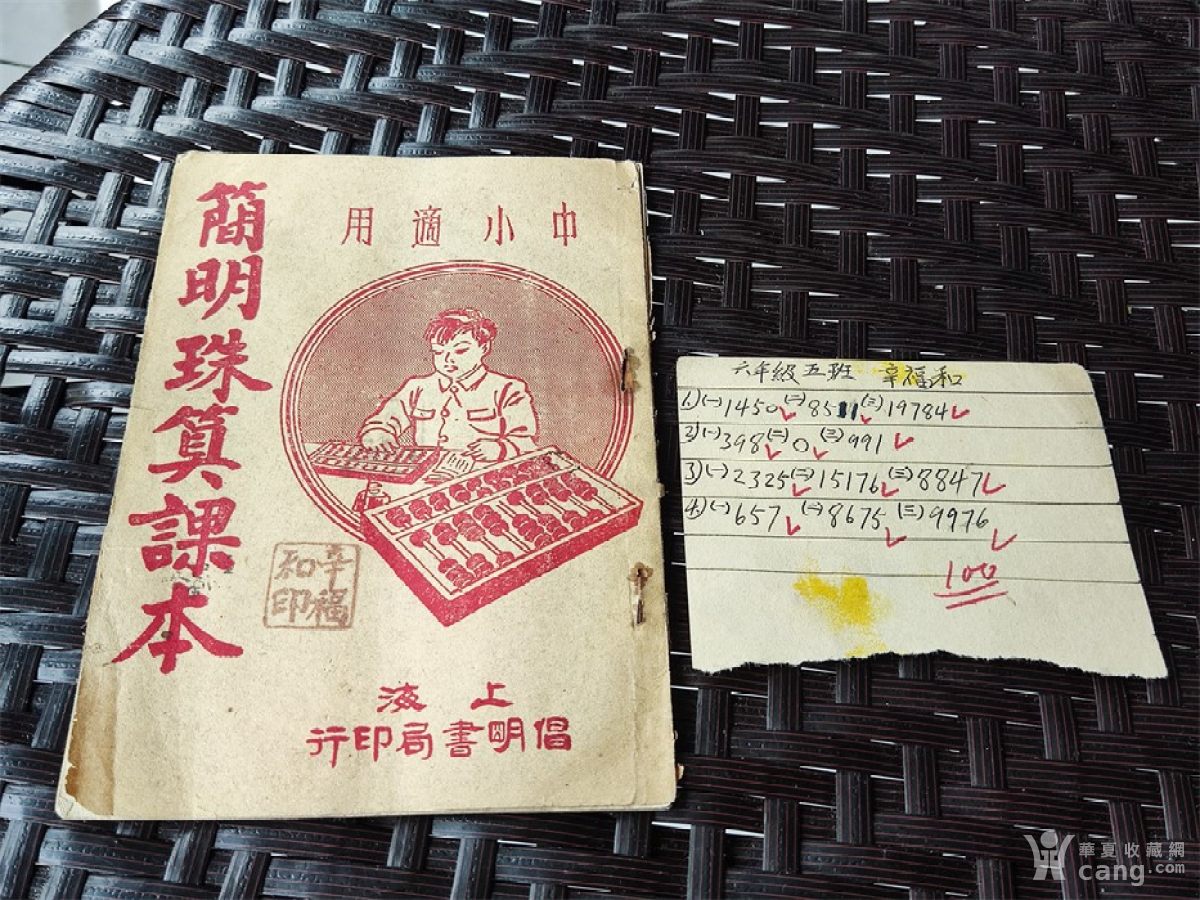 中小適用
簡明珠算課本
辛福
和印
上海
倡明書局印行
六年級五班 辛福和
1)(一)1450(二)8511(三)19784
2)(一)398(二)0(三)991
3)(一)2325(二)15176(三)8847
4)(一)657(二)8675(三)9976
100
華夏收藏網
cang.com